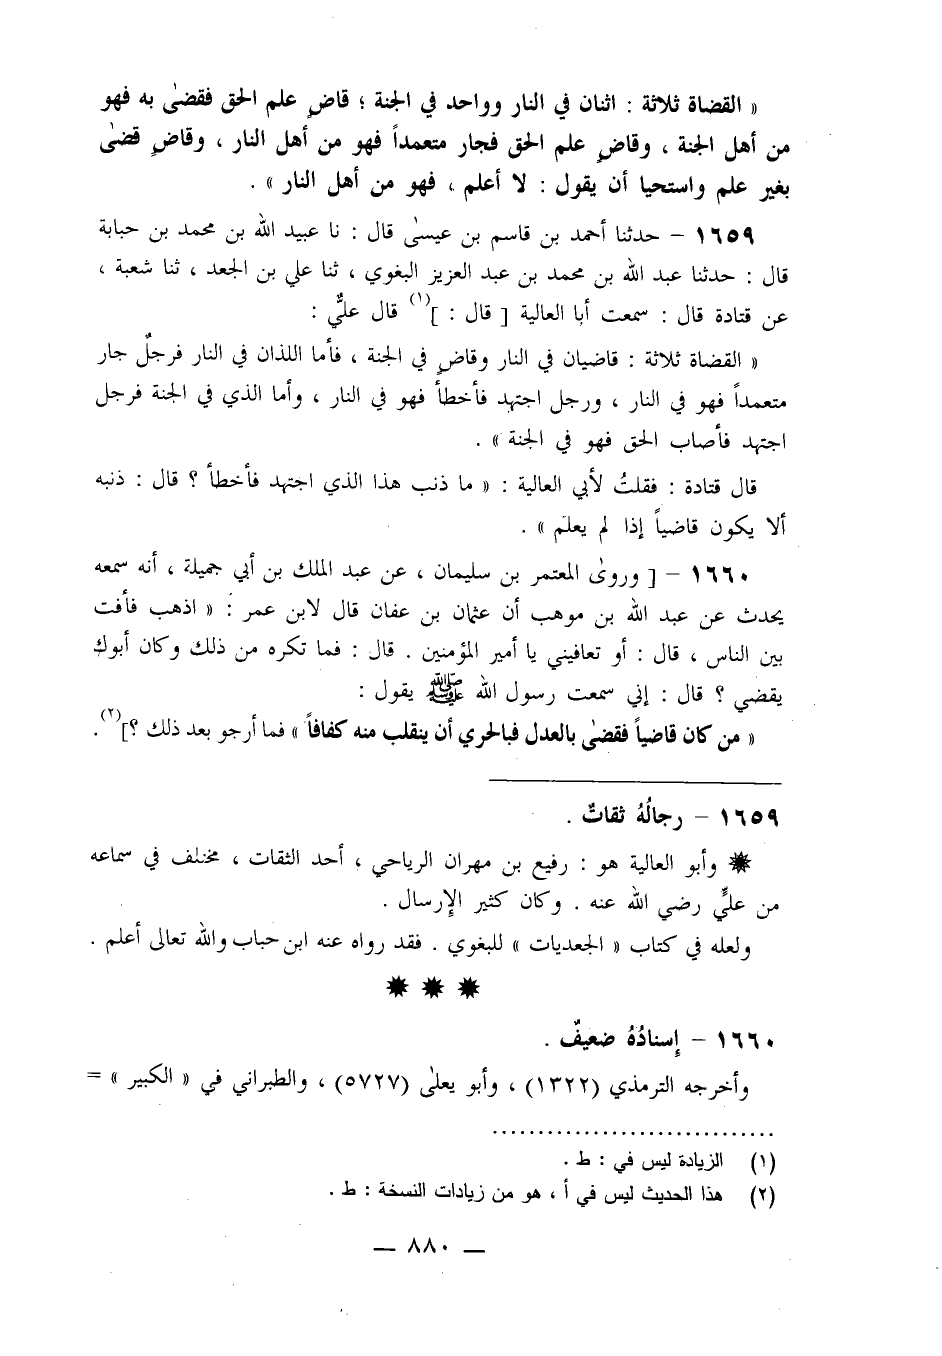 « القضاة ثلاثة : اثنان في النار وواحد في الجنة ؛ قاضٍ علم الحق فقضىٰ به فهو
من أهل الجنة ، وقاضٍ علم الحق فجار متعمداً فهو من أهل النار ، وقاضٍ قضىٰ
بغير علم واستحيا أن يقول : لا أعلم ، فهو من أهل النار » .
١٦٥٩ – حدثنا أحمد بن قاسم بن عيسىٰ قال : نا عبيد الله بن محمد بن حبابة
قال : حدثنا عبد الله بن محمد بن عبد العزيز البغوي ، ثنا علي بن الجعد ، ثنا شعبة ،
عن قتادة قال : سمعت أبا العالية [ قال : ](١) قال عليٌّ :
« القضاة ثلاثة : قاضيان في النار وقاضٍ في الجنة ، فأما اللذان في النار فرجلٌ جار
متعمداً فهو في النار ، ورجل اجتهد فأخطأ فهو في النار ، وأما الذي في الجنة فرجل
اجتهد فأصاب الحق فهو في الجنة » .
قال قتادة : فقلتُ لأبي العالية : « ما ذنب هذا الذي اجتهد فأخطأ ؟ قال : ذنبه
ألا يكون قاضياً إذا لم يعلم » .
١٦٦٠ – [ وروىٰ المعتمر بن سليمان ، عن عبد الملك بن أبي جميلة ، أنه سمعه
يحدث عن عبد الله بن موهب أن عثمان بن عفان قال لابن عمر : « اذهب فأفت
بين الناس ، قال : أو تعافيني يا أمير المؤمنين . قال : فما تكره من ذلك وكان أبوك
يقضي ؟ قال : إني سمعت رسول الله ﷺ يقول :
« من كان قاضياً فقضىٰ بالعدل فبالحري أن ينقلب منه كفافاً » فما أرجو بعد ذلك ؟](٢).
١٦٥٩ – رجالُهُ ثقاتٌ .
✹ وأبو العالية هو : رفيع بن مهران الرياحي ، أحد الثقات ، مختلف في سماعه
من عليٍّ رضي الله عنه . وكان كثير الإرسال .
ولعله في كتاب « الجعديات » للبغوي . فقد رواه عنه ابن حباب والله تعالى أعلم .
✹ ✹ ✹
١٦٦٠ – إسنادُهُ ضعيفٌ .
وأخرجه الترمذي (١٣٢٢) ، وأبو يعلىٰ (٥٧٢٧) ، والطبراني في « الكبير » =
(١) الزيادة ليس في : ط .
(٢) هذا الحديث ليس في أ ، هو من زيادات النسخة : ط .
— ٨٨٠ —